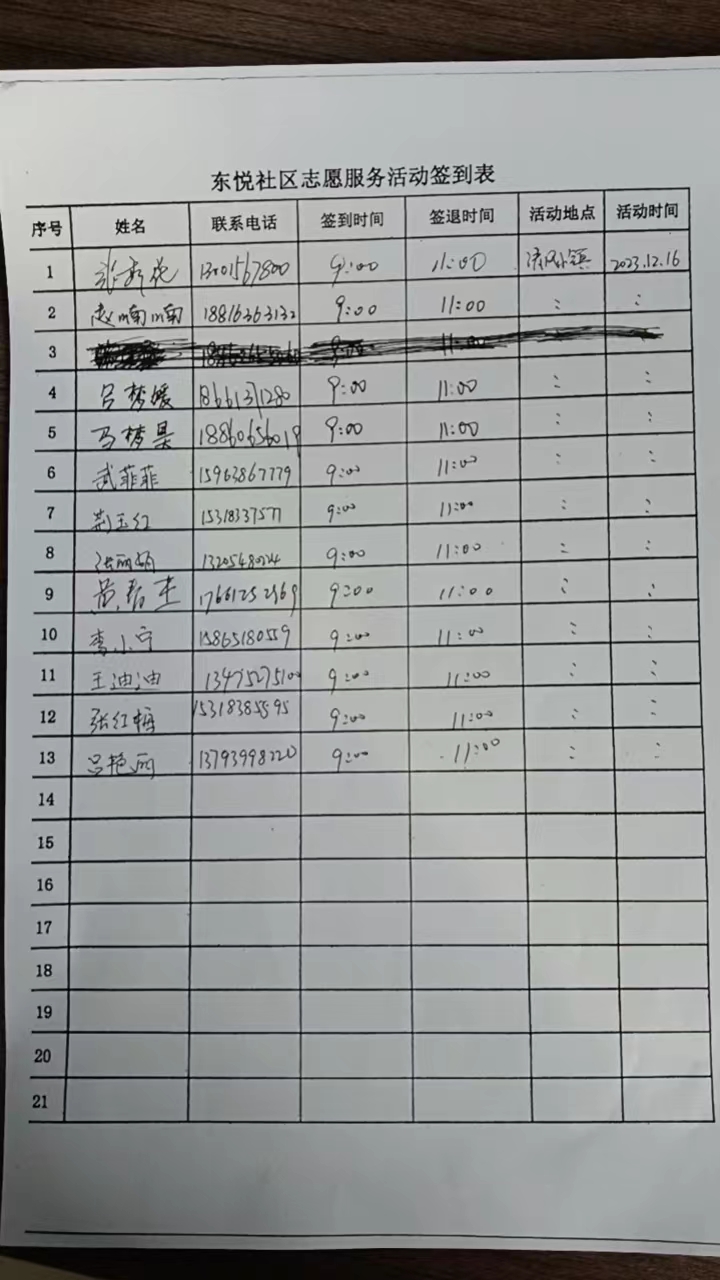 东悦社区志愿服务活动签到表
序号 姓名 联系电话 签到时间 签退时间 活动地点 活动时间
1 13001567800 9:00 11:00 2023.12.16
2 赵喃喃 18816363132 9:00 11:00 : :
3 9:00 11:00
4 吕梦媛 18661371280 9:00 11:00 : :
5 马梦果 18860656019 9:00 11:00 : :
6 武菲菲 15963867779 9:00 11:00 : :
7 荆玉红 15318337577 9:00 11:00 : :
8 张丽娟 9:00 11:00 : :
9 黄春奎 17661252969 9:00 11:00 : :
10 李小宁 15865180559 9:00 11:00 : :
11 王迪迪 13475275100 9:00 11:00 : :
12 张红梅 15318385595 9:00 11:00 : :
13 吕艳丽 13793998220 9:00 11:00 : :
14
15
16
17
18
19
20
21